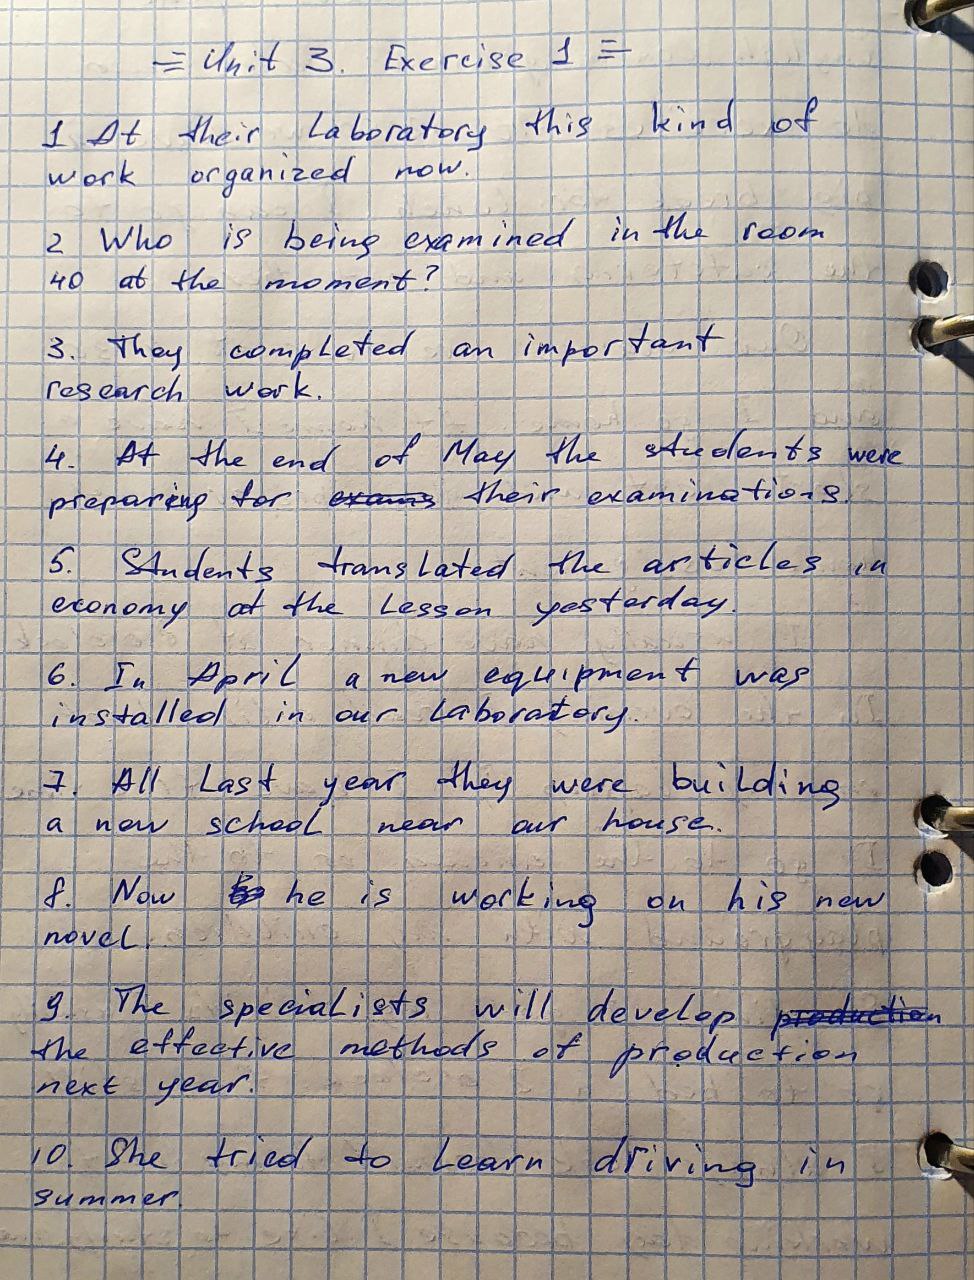 = Unit 3. Exercise 1 =
1 At their Laboratory this kind of
work organized now.
2 Who is being examined in the room
40 at the moment?
3. They completed an important
research work.
4. At the end of May the students were
preparing for exams their examinations.
5. Students translated the articles in
economy at the Lesson yesterday.
6. In April a new equipment was
installed in our Laboratory.
7. All Last year they were building
a new school near our house.
8. Now he is working on his new
novel.
9. The specialists will develop production
the effective methods of production
next year.
10. She tried to Learn driving in
summer.